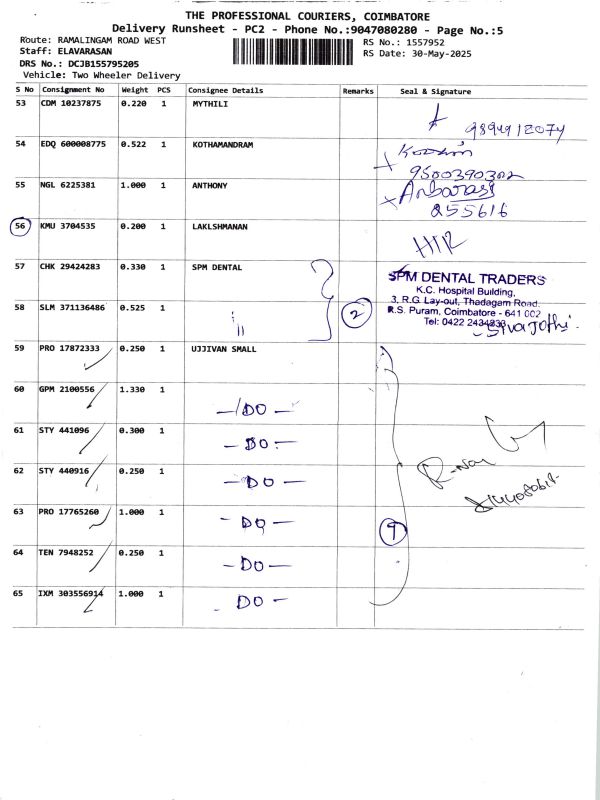 THE PROFESSIONAL COURIERS, COIMBATORE
Delivery Runsheet - PC2 - Phone No.:9047080280 - Page No.:5
Route: RAMALINGAM ROAD WEST
Staff: ELAVARASAN
DRS No.: DCJB155795205
Vehicle: Two Wheeler Delivery
RS No.: 1557952
RS Date: 30-May-2025
S No Consignment No Weight PCS Consignee Details Remarks Seal & Signature
53 CDM 10237875 0.220 1 MYTHILI
9894912074
54 EDQ 600008775 0.522 1 KOTHAMANDRAM
9500390302
55 NGL 6225381 1.000 1 ANTHONY
Anbarasi
255616
56 KMU 3704535 0.200 1 LAKLSHMANAN
57 CHK 29424283 0.330 1 SPM DENTAL
SPM DENTAL TRADERS
K.C. Hospital Building,
3, R.G. Lay-out, Thadagam Road.
R.S. Puram, Coimbatore - 641 002
Tel: 0422 2434833
Siva Jothi.
58 SLM 371136486 0.525 1 " 2
59 PRO 17872333 0.250 1 UJJIVAN SMALL
60 GPM 2100556 1.330 1 - DO -
61 STY 441096 0.300 1 - DO -
62 STY 440916 0.250 1 - DO -
63 PRO 17765260 1.000 1 - DO -
64 TEN 7948252 0.250 1 - DO -
65 IXM 303556914 1.000 1 - DO -